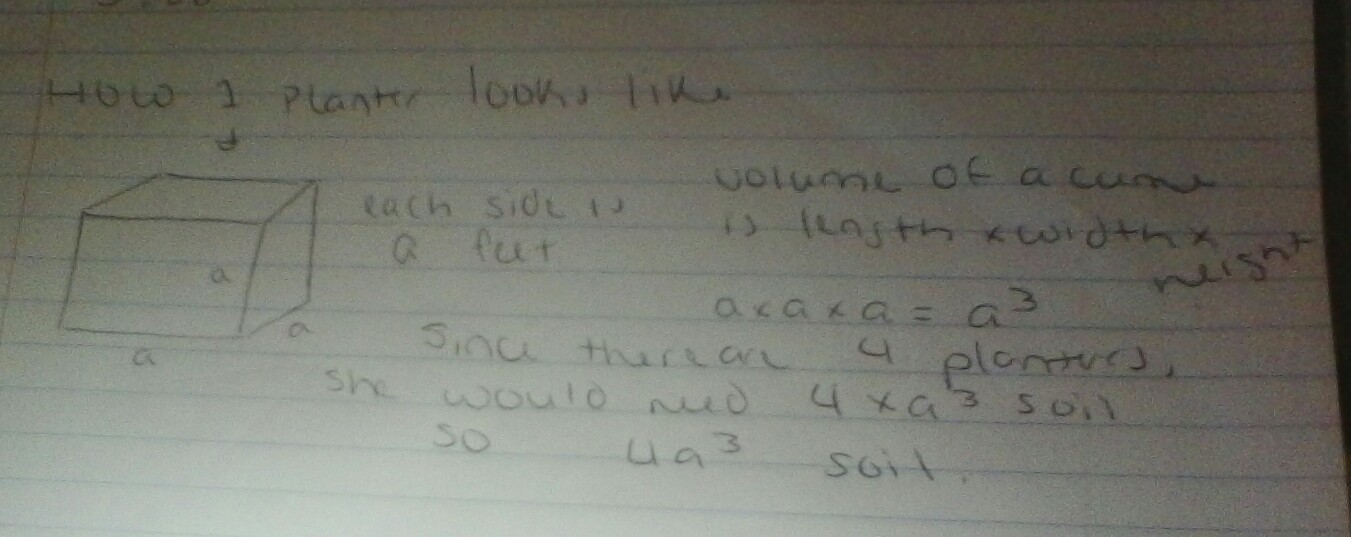 How 1 planter looks like
each side is
a feet
a
a
a
volume of a cube
is length x width x
height
a x a x a = a³
Since there are 4 planters,
she would need 4 x a³ soil
so 4a³ soil.